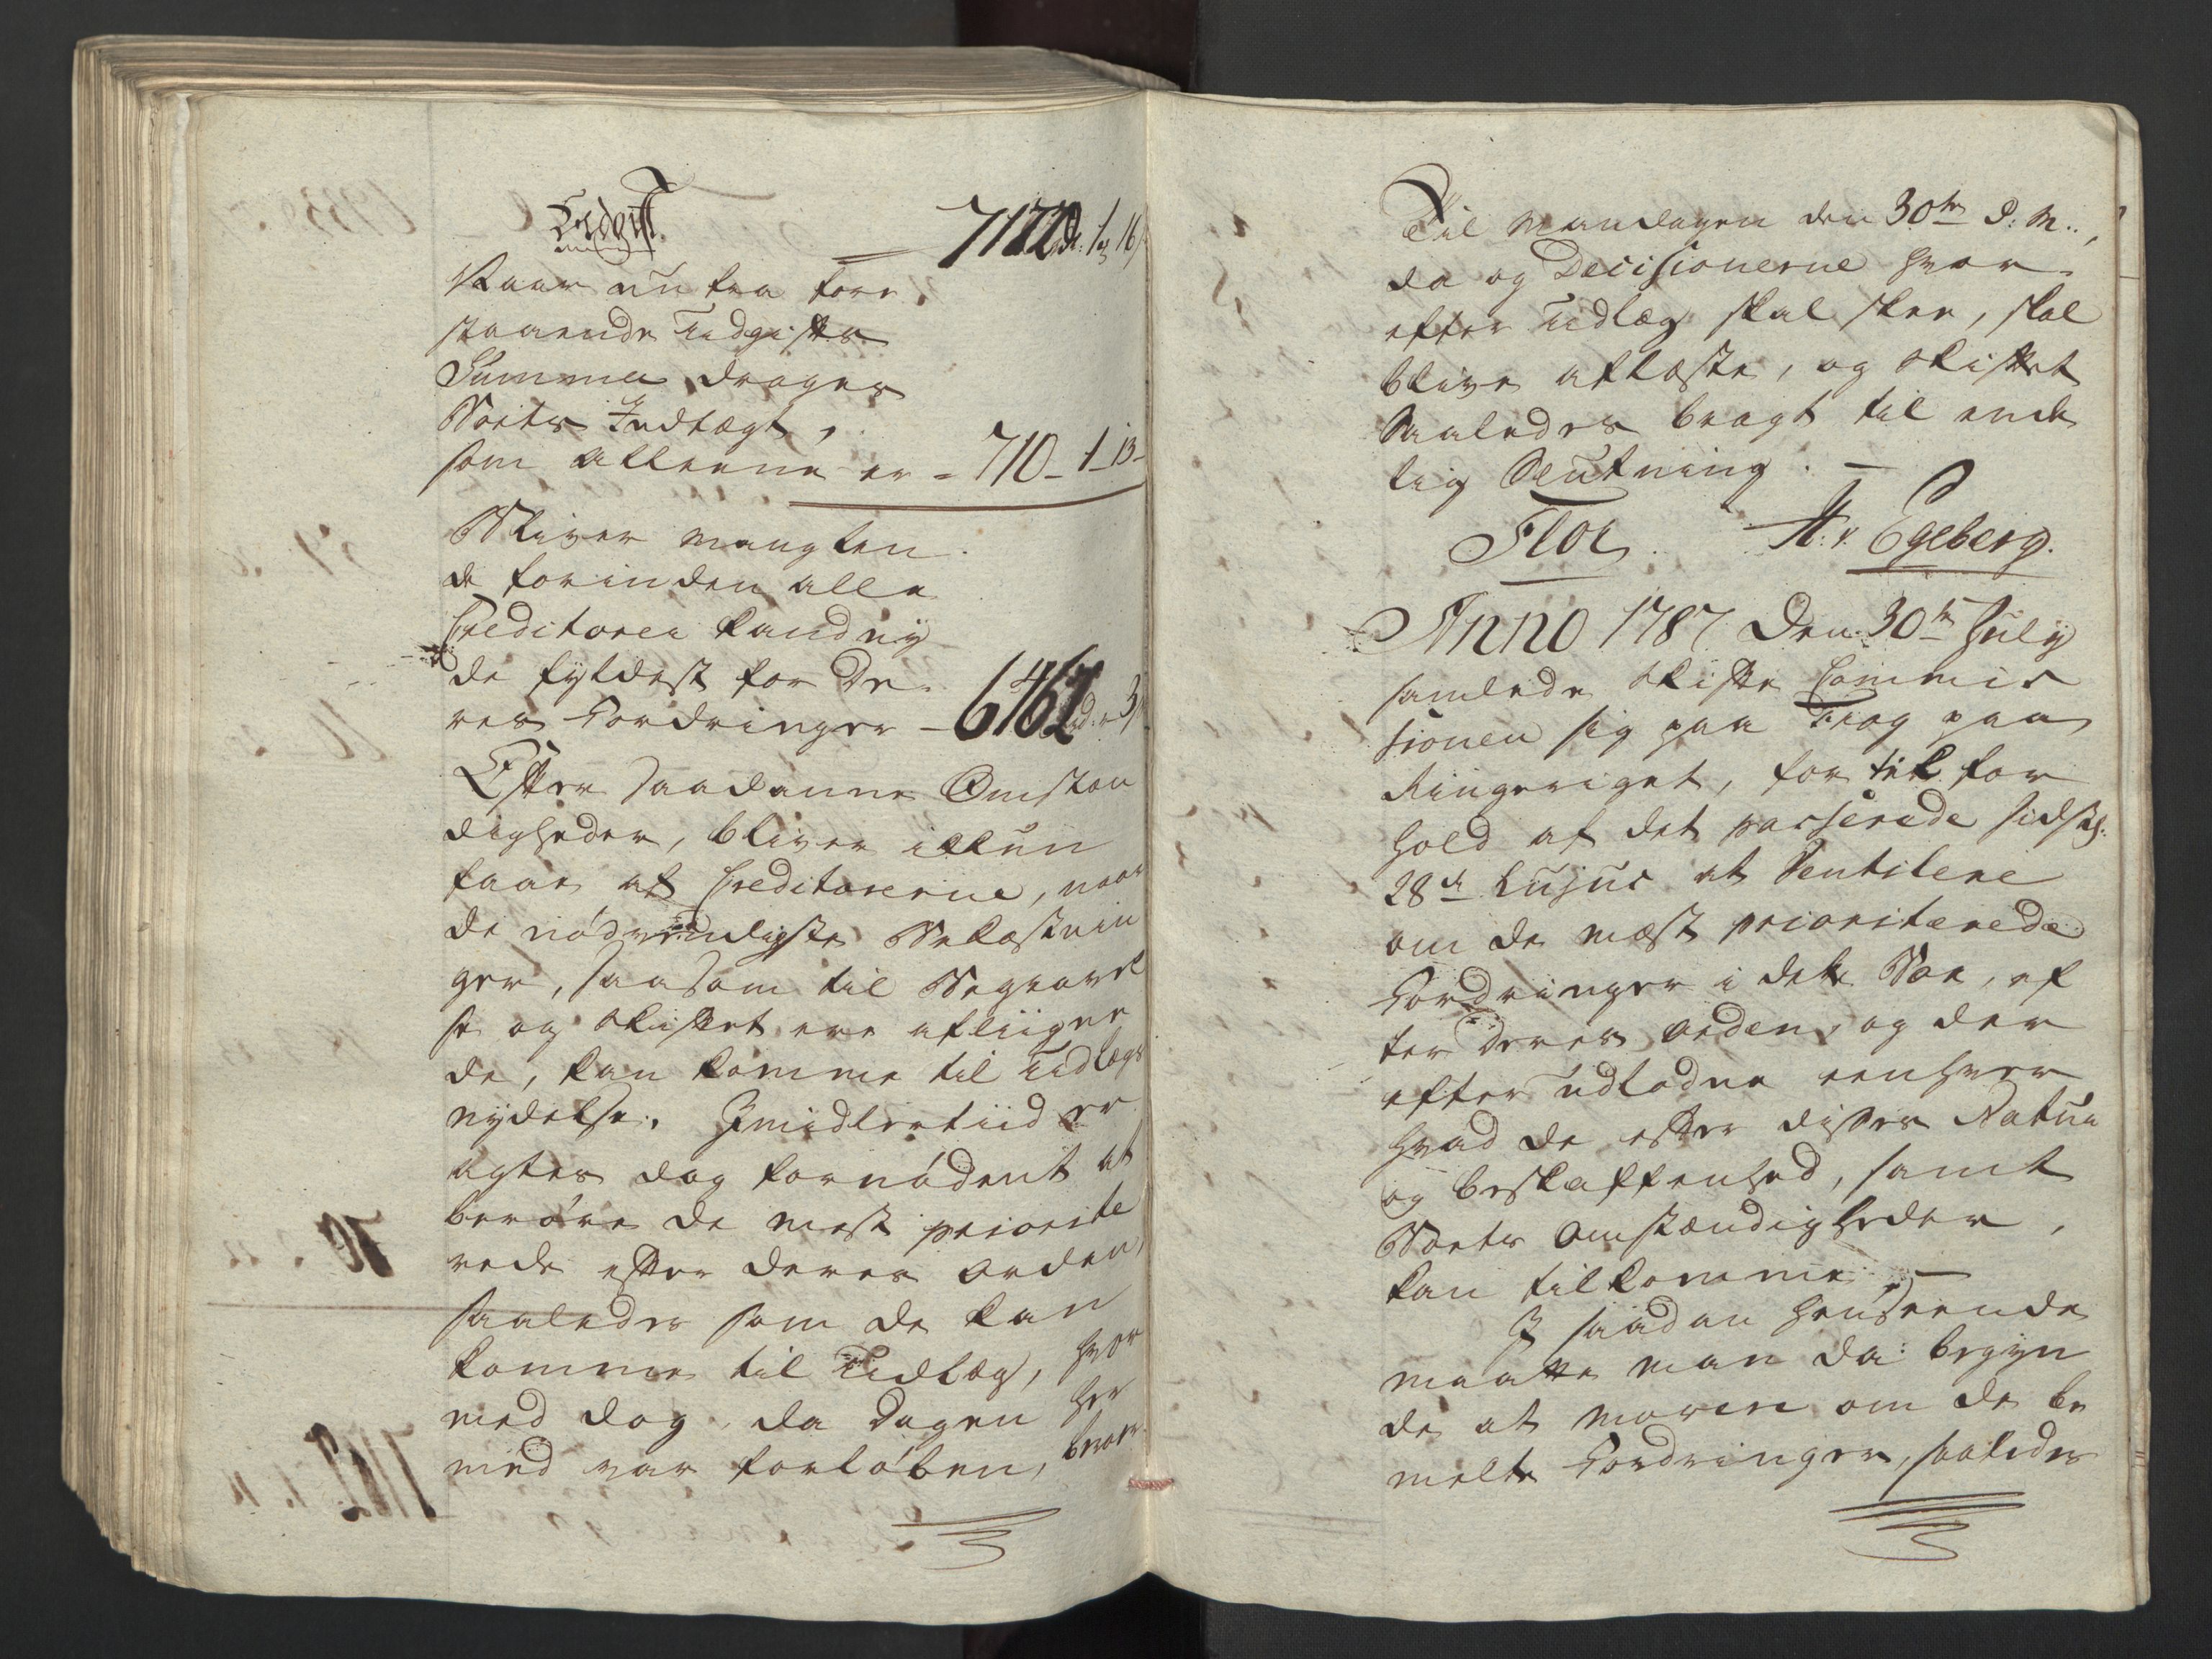 Udgift. 7172 rd: 1 ₰ 16 ß
Naar nu fra fore¬
staaende Udgifts
Summa drages
Boets Indtægt,
som alleene er = 710 - 1 - 13 -
Bliver manglen
de forinden alle
Creditorer kand ny
de fyldest for De¬
res Fordringer - 6462 rd. " 3 ß
Efter saadanne Omstæn
digheder, bliver ikkun
faae af Creditorerne, naar
de nødvendigste Bekostnin
ger, saasom til Begravel
se og Skiftet ere afliigne
de, kan komme til Udlægs
nydelse. Imidlertiid er
agtes dog fornødent at
berøre de mest priorite
rede efter deres Orden,
saaledes som de kan
komme til Udlæg, hvor
med dog, da Dagen her
med var forløben, beroer
Til Mandagen den 30te d: M:,
da og Decisionerne hvor¬
efter Udlæg skal skee, skal
blive aflæste, og Skiftet
saaledes bragt til ende
lig Slutning. -
Flor. A. v. Egeberg.
Anno 1787 Den 30te July
samlede Skifte Commis
sionen sig paa Trøg paa
Ringeriget, for til for
hold af det passerede sidstl:
28de hujus at Ventilere
om de mest prioriterede
Fordringer i dette Boe, ef
ter deres Orden, og der
efter udlodne eenhver
hvad de efter disses Natur
og beskaffenhed, samt
Boets Omstændigheder,
kan tilkomme. -
I saadan henseende
maatte man da begyn
de at movere om de be
melte Fordringer, saaledes